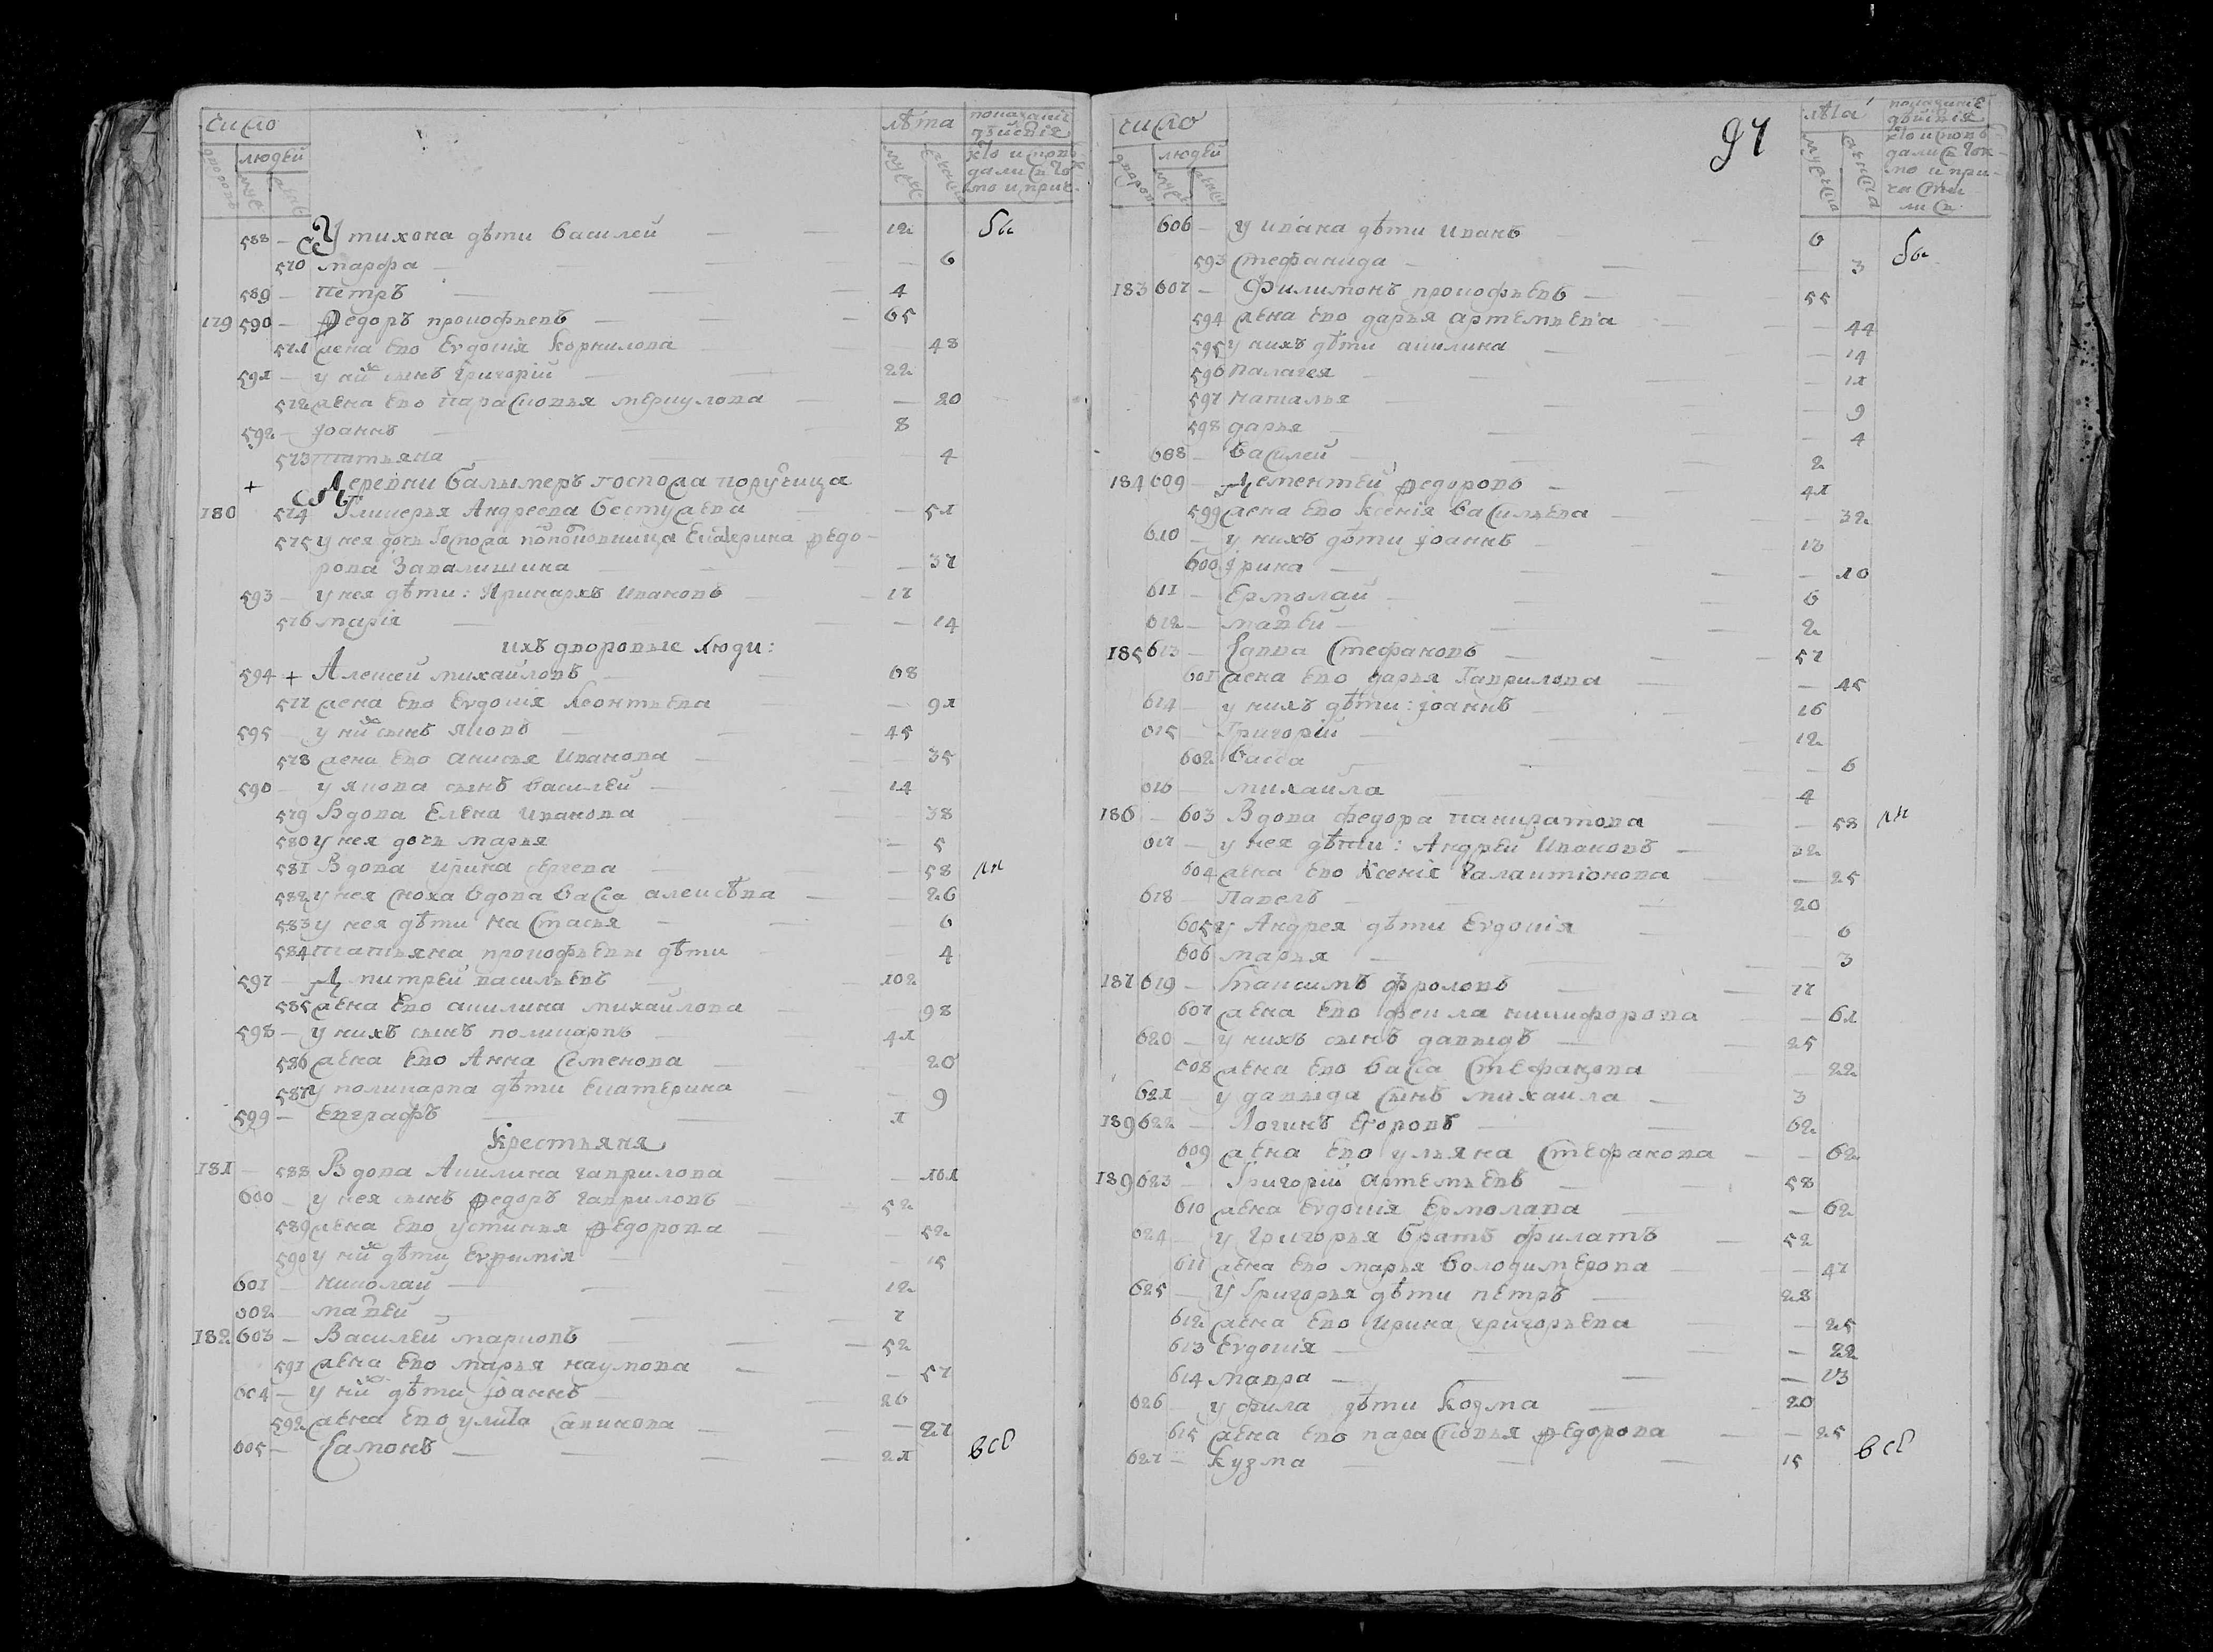 число
лѣта
показаніе
дѣйствія
людей
кто исповѣ-
дворовъ
муж
женс
муж
женс
дались
588 — У тихона дѣти василей — 12 бы
570 марфа — 6
589 — петръ — 4
179 590 — Федоръ прокофьевъ — 65
571 жена ево Евдокія Корнилова — 48
591 — у нихъ сынъ григорій — 22
572 жена ево парасковья меркулова — 20
592 — Іоаннъ — 8
573 татьяна — 4
+ Деревни балымеръ госпожа порутчица
180 574 Гликерья Андреева бестужева — 51
575 у нея дочь Госпожа полковница Екатерина федо-
рова Завалишина — 37
593 — у нея дѣти: Иринархъ Ивановъ — 17
576 марія — 14
ихъ дворовые люди:
594 + Алексей михайловъ — 68
577 жена ево Евдокія леонтьева — 91
595 — у нихъ сынъ яковъ — 45
578 жена ево анисья Иванова — 35
596 — у якова сынъ василей — 14
579 Вдова Елена Иванова — 38
580 у нея дочь марья — 5
581 Вдова Ирина сергеева — 58
582 у нея сноха вдова васса алексѣва — 26
583 у нея дѣти настасья — 6
584 татьяна прокофьевы дѣти — 4
597 — Дмитрей васильевъ — 102
585 жена ево акилина михайлова — 98
598 — у нихъ сынъ поликарпъ — 41
586 жена ево Анна Семенова — 20
587 у поликарпа дѣти екатерина — 9
599 — Евграфъ — 1
Крестьяня
181 — 588 Вдова Акилина гаврилова — 101
600 — у нея сынъ федоръ гавриловъ — 52
589 жена ево устинья федорова — 52
590 у нихъ дѣти Евфимія — 15
601 — николай — 12
602 — матвей — 7
182 603 — Василей марковъ — 52
591 жена ево марья наумова — 57
604 — у нихъ дѣти Іоаннъ — 26
592 жена ево улита савинова — 27
605 — Самонъ — 21 всѣ
число
97
лѣта
показаніе
дѣйствія
людей
кто исповѣ-
дворовъ
муж
женс
дались так-
мо и при-
частили
лись
606 — у ивана дѣти иванъ — 6 бы
593 стефанида — 3
183 607 — Филимонъ прокофьевъ — 55
594 жена ево дарья артемьева — 44
595 у нихъ дѣти акилина — 14
596 палагея — 11
597 наталья — 9
598 дарья — 4
608 — василей — 2
184 609 — Дементей федоровъ — 41
599 жена ево Ксенія васильева — 32
610 — у нихъ дѣти Іоаннъ — 13
600 Ірина — 10
611 — Ермолай — 6
612 — матвей — 2
185 613 — Савва Стефановъ — 57
601 жена ево дарья Гаврилова — 45
614 — у нихъ дѣти: Іоаннъ — 16
615 — Григорій — 12
602 васса — 6
616 — михаила — 4
186 — 603 Вдова федора панкратова — 58
617 — у нея дѣти: Андрей Ивановъ — 32
604 жена ево Ксенія галактіонова — 25
618 — Павелъ — 20
605 у Андрея дѣти Евдокія — 6
606 марья — 3
187 619 — Максимъ фроловъ — 77
607 жена ево фекла никифорова — 61
620 — у нихъ сынъ давыдъ — 25
608 жена ево васса Стефанова — 22
621 — у давыда сынъ михаила — 3
189 622 — Логинъ Егоровъ — 62
609 жена ево ульяна Стефанова — 62
189 623 — Григорій артемьевъ — 58
610 жена Евдокія Ермолаева — 62
624 — у григорья братъ филатъ — 52
611 жена ево марья володимерова — 47
625 — у Григорья дѣти петръ — 28
612 жена ево Ирина григорьева — 25
613 Евдокія — 22
614 мавра — 13
626 — у фила дѣти Козма — 20
615 жена ево парасковья федорова — 25
627 — Кузма — 15 всѣ